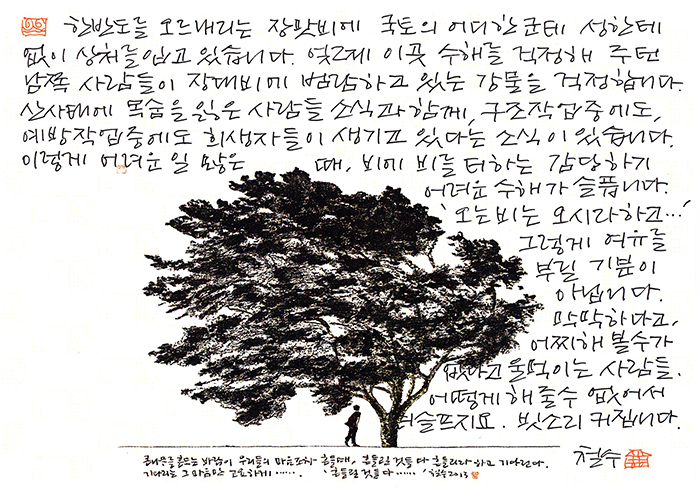 한반도를 오르내리는 장맛비에 국토의 어디 한 군데 성한 데
없이 상처를 입고 있습니다. 엊그제 이곳 수해를 걱정해 주던
남쪽 사람들이 장대비에 범람하고 있는 강물을 걱정합니다.
산사태에 목숨을 잃은 사람들 소식과 함께, 구조작업중에도,
예방작업중에도 희생자들이 생기고 있다는 소식이 있습니다.
이렇게 어려운 일 많은 때, 비에 비를 더하는 감당하기
어려운 수해가 슬픕니다.
'오는 비는 오시라 하고…'
그렇게 여유를
부릴 기분이
아닙니다.
막막하다고,
어찌해 볼수가
없다고 울먹이는 사람들.
어떻게 해 줄수 없어서
더 슬프지요. 빗소리 커집니다.
철수
큰나무를 흔드는 바람이 우리들의 마음조차 흔들때, 흔들릴 것들 다 흔들리라 하고 기다린다.
기다리는 그 마음만 고요하게 ……. '흔들릴 것들 다 ……' 철수 2013